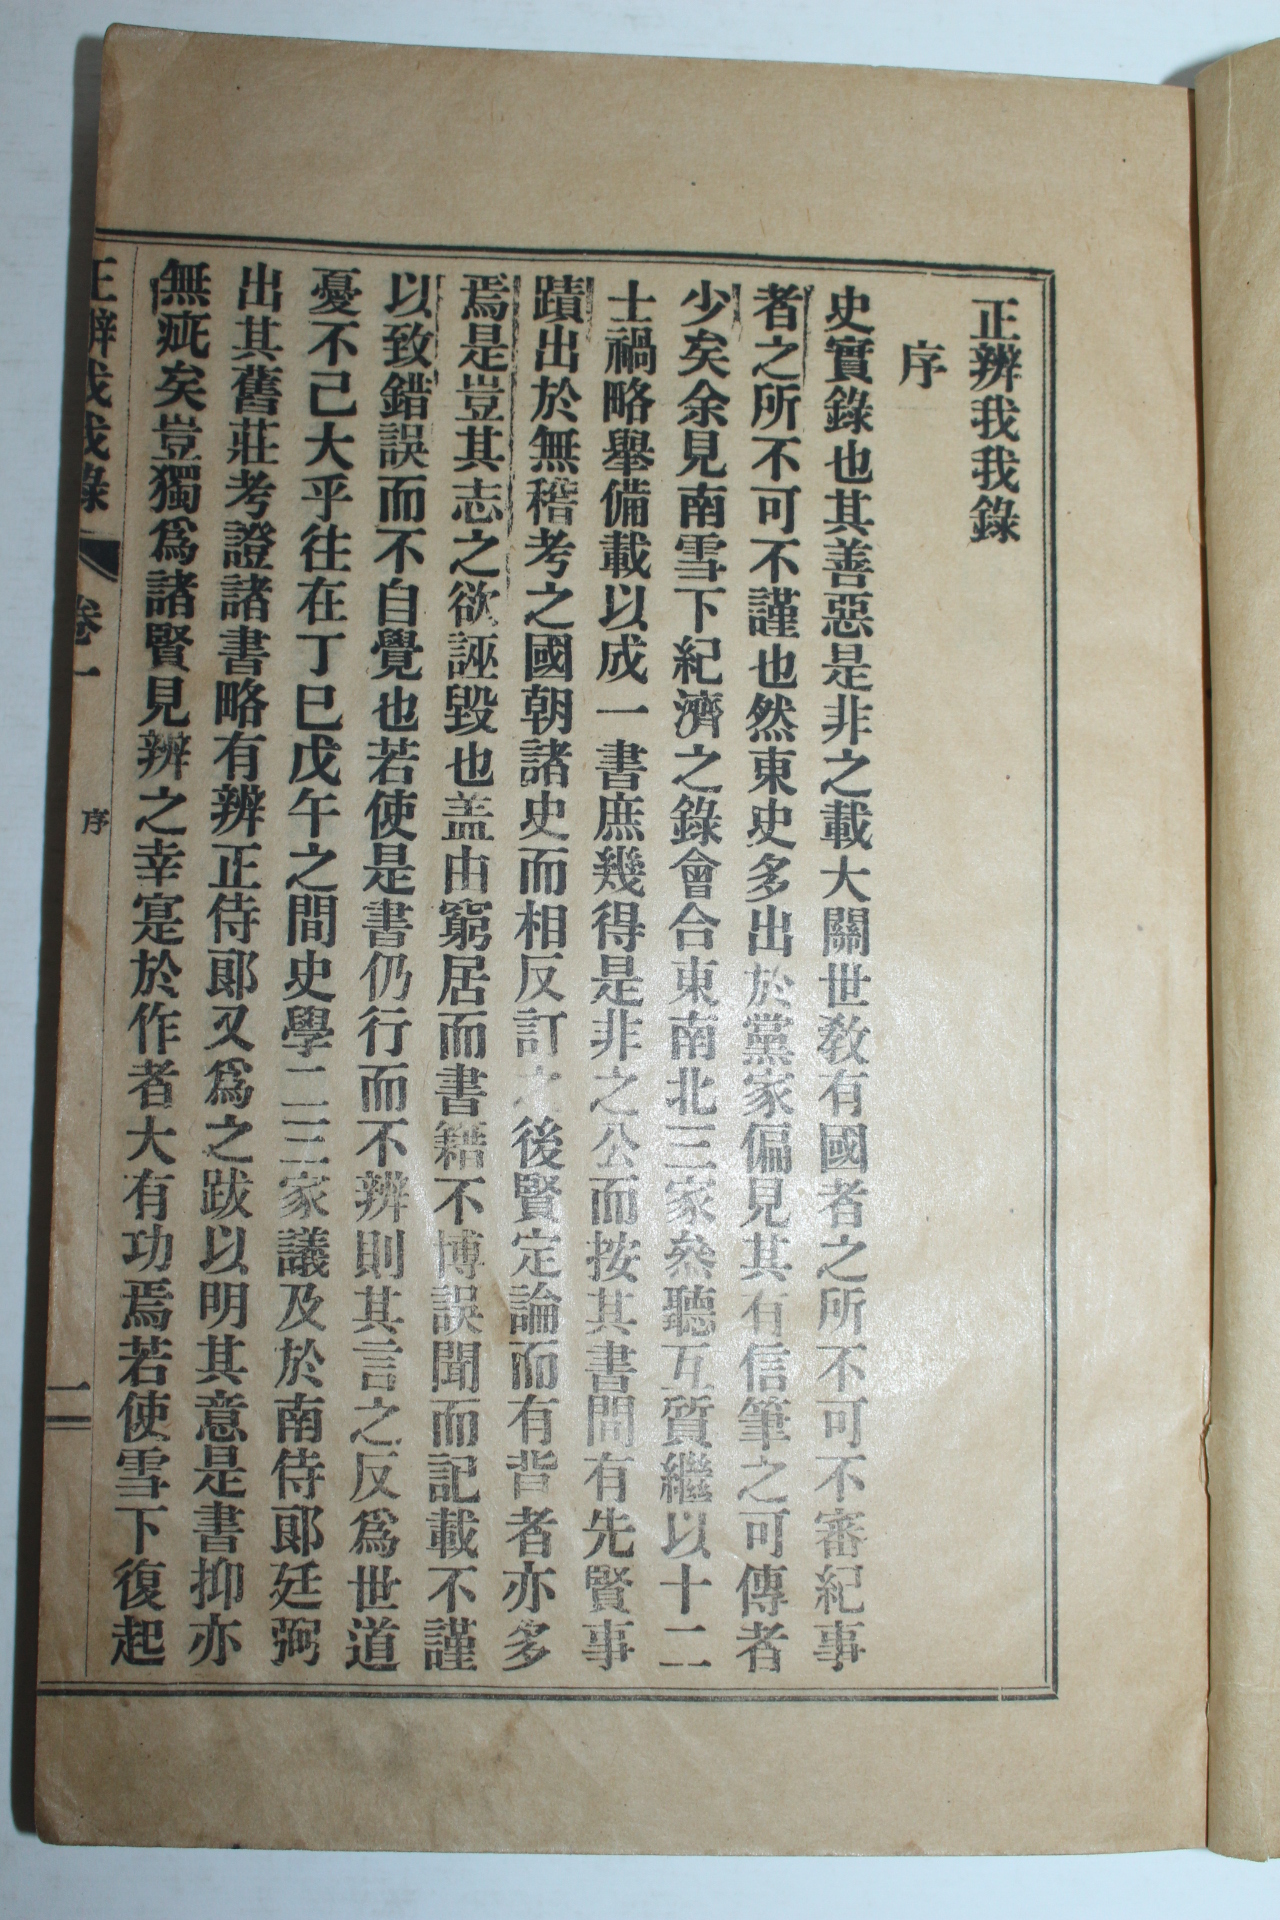 正辨我我錄
序
史實錄也其善惡是非之載大關世教有國者之所不可不審紀事
者之所不可不謹也然東史多出於黨家偏見其有信筆之可傳者
少矣余見南雪下紀濟之錄會合東南北三家叅聽互質繼以十二
士禍略舉備載以成一書庶幾得是非之公而按其書間有先賢事
蹟出於無稽考之國朝諸史而相反訂之後賢定論而有背者亦多
焉是豈其志之欲誣毀也盖由窮居而書籍不博誤聞而記載不謹
以致錯誤而不自覺也若使是書仍行而不辨則其言之反爲世道
憂不己大乎往在丁巳戊午之間史學二三家議及於南侍郞廷弼
出其舊莊考證諸書略有辨正侍郞又爲之跋以明其意是書抑亦
無疵矣豈獨爲諸賢見辨之幸寔於作者大有功焉若使雪下復起
正辨我我錄 卷一 序 一